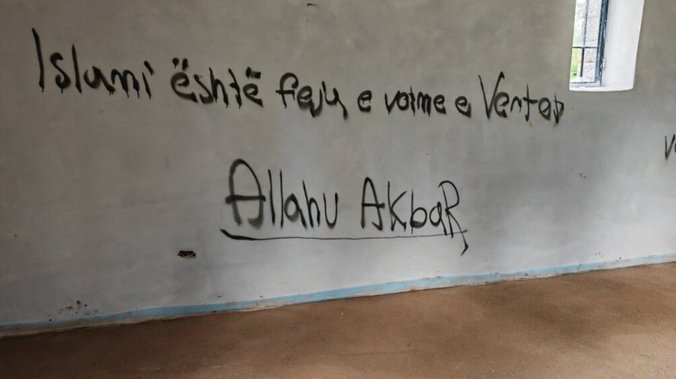 Islami është feja e vatme e Vertet
Allahu AkbaR